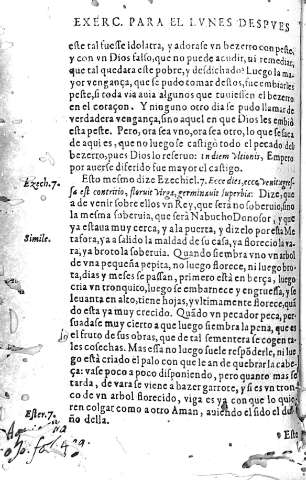 EXERC. PARA EL LVNES DESPVES
este tal fuesse idolatra, y adorase vn bezerro con peste,
y con vn Dios falso, que no puede acudir, ni remediar,
que tal quedara este pobre, y desdichado? Luego la ma-
yor vengança, que se pudo tomar destos, fue embiarles
peste, si toda via auia algunos que tuuiessen el bezerro
en el coraçon. Y ninguno otro dia se pudo llamar de
verdadera vengança, sino aquel en que Dios les embió
esta peste. Pero, ora sea vno, ora sea otro, lo que se saca
de aqui es, que no luego se castigò todo el pecado del
bezerro, pues Dios lo reseruo: In diem vltionis. Empero
por auerse diferido fue mayor el castigo.
Ezech. 7.
Esto mesmo dize Ezechiel. 7. Ecce dies, ecce venit: egres-
sa est contritio, floruit virga, germinauit superbia: Dize, que
a de venir sobre ellos vn Rey, que será no soberuio, sino
la mesma soberuia, que será NabuchoDonosor, y que
ya estaua muy cerca, y a la puerta, y dizelo por esta Me
Simile.
tafora, ya a salido la maldad de su casa, ya florecio la va-
ra, ya brotò la soberuia. Quando siembra vno vn arbol
de vna pequeña pepita, no luego florece, ni luego bro-
ta, dias y meses se passan, primero está en berça, luego
cria vn tronquito, luego se embarnece y engruessa, y se
leuanta en alto, tiene hojas, y vltimamente florece, quã
do esta ya muy crecido. Quãdo vn pecador peca, per-
suadase muy cierto a que luego siembra la pena, que es
el fruto de sus obras, que de tal sementera se cogen ta-
les cosechas. Mas essa no luego suele respõderle, ni lue-
go está criado el palo con que le an de quebrar la cabe-
ça: vase poco a poco disponiendo, pero quanto mas se
tarda, de vara se viene a hazer garrote, y si es vn tron-
co de vn arbol florecido, viga es ya con que lo quie-
Ester. 7.
ren colgar como a otro Aman, auiendo el sido el due
ño della.
Esto